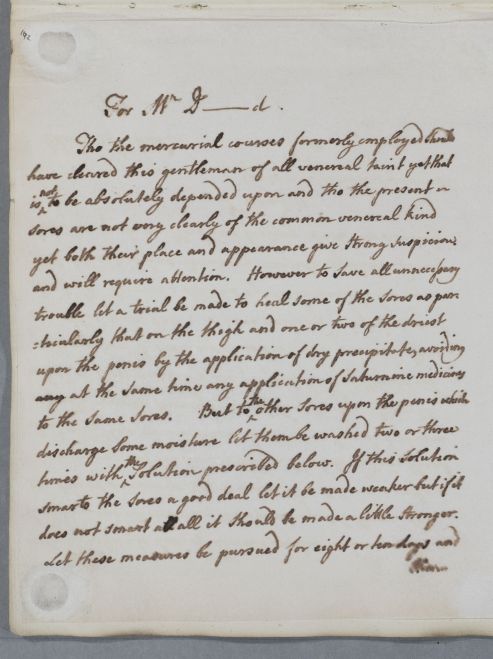 192
For Mr D——d.
Tho the mercurial courses formerly employed should
have cleared this gentleman of all venereal taint yet that
is not to be absolutely depended upon and tho the present
sores are not very clearly of the common venereal kind
yet both their place and appearance give strong suspicion,
and will require attention. However to save all unnecessary
trouble let a trial be made to heal some of the sores as par
:ticularly that on the thigh and one or two of the driest
upon the penis by the application of dry precipitate, avoiding
any at the same time any application of saturnine medicines
to the same sores. But to the other sores upon the penis which
discharge some moisture let them be washed two or three
times with the Solution prescribed below. If this Solution
smarts the sores a good deal let it be made weaker but if it
does not smart at all it should be made a little stronger.
Let these measures be pursued for eight or ten days and